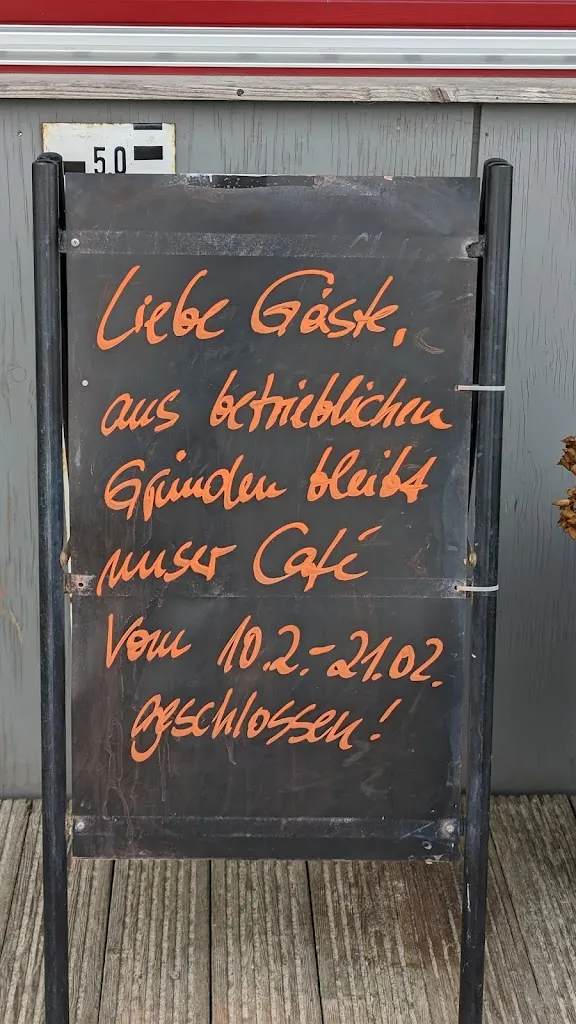 50
Liebe Gäste,
aus betrieblichen
Gründen bleibt
unser Café
vom 10.2.-21.02.
geschlossen!